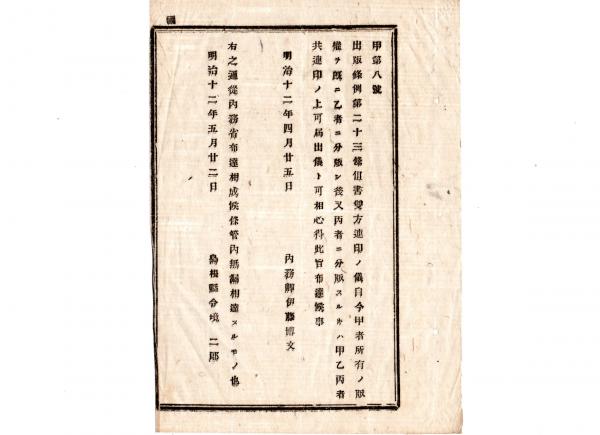 甲第八號
出版條例第二十三條但書雙方連印ノ儀自今甲者所有ノ版
權ヲ既ニ乙者ニ分版シ後又丙者ニ分版スルトキハ甲乙丙者
共連印ノ上可届出儀ト可相心得此旨布達候事
明治十二年四月廿五日
内務卿伊藤博文
右之通從内務省布達相成候條管内無漏相達スルモノ也
明治十二年五月廿二日
島根縣令境二郎